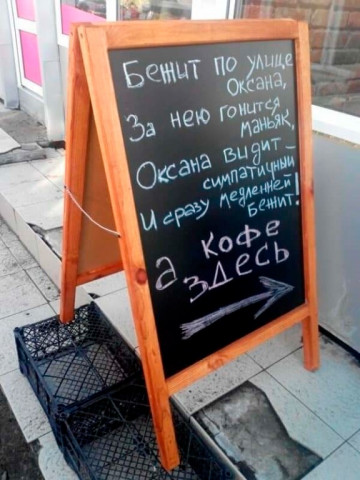 Бежит по улице
Оксана,
За нею гонится
маньяк,
Оксана видит –
симпатичный
И сразу медленней
Бежит!
а кофе
здесь